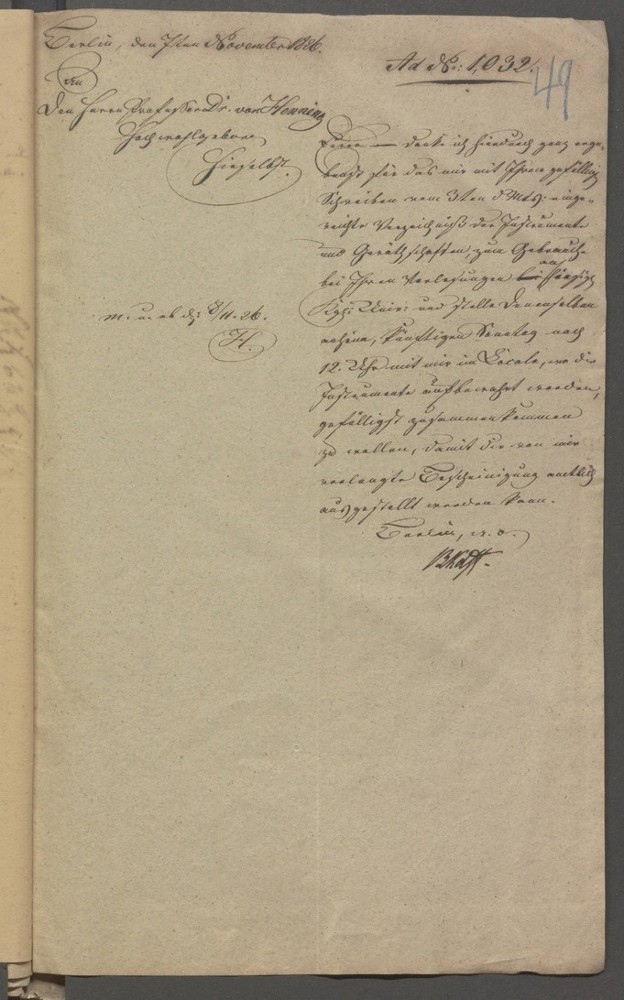 Berlin, den 7ten November 1826.
Ad No: 1,032.
49
An
Den Herrn Professor Dr. von Henning
Hochwohlgeboren
Hieselbst.
Euer — danke ich hierdurch ganz erge-
benst für das mir mit Ihrem gefälligen
Schreiben vom 3ten d Mts: einge-
reichte Verzeichniß der Instrumente
und Geräthschaften zum Gebrauche
bei Ihren Vorlesungen an hiesiger
Kgl: Univ: und stelle Denenselben
anheim, künftigen Sonntag nach
12. Uhr mit mir im Locale, wo die
Instrumente aufbewahrt werden,
gefälligst zusammen kommen
zu wollen, damit die von mir
verlangte Bescheinigung amtlich
ausgestellt werden kann.
Berlin, w. o.
m. u. ab d: 8/11. 26.
H.